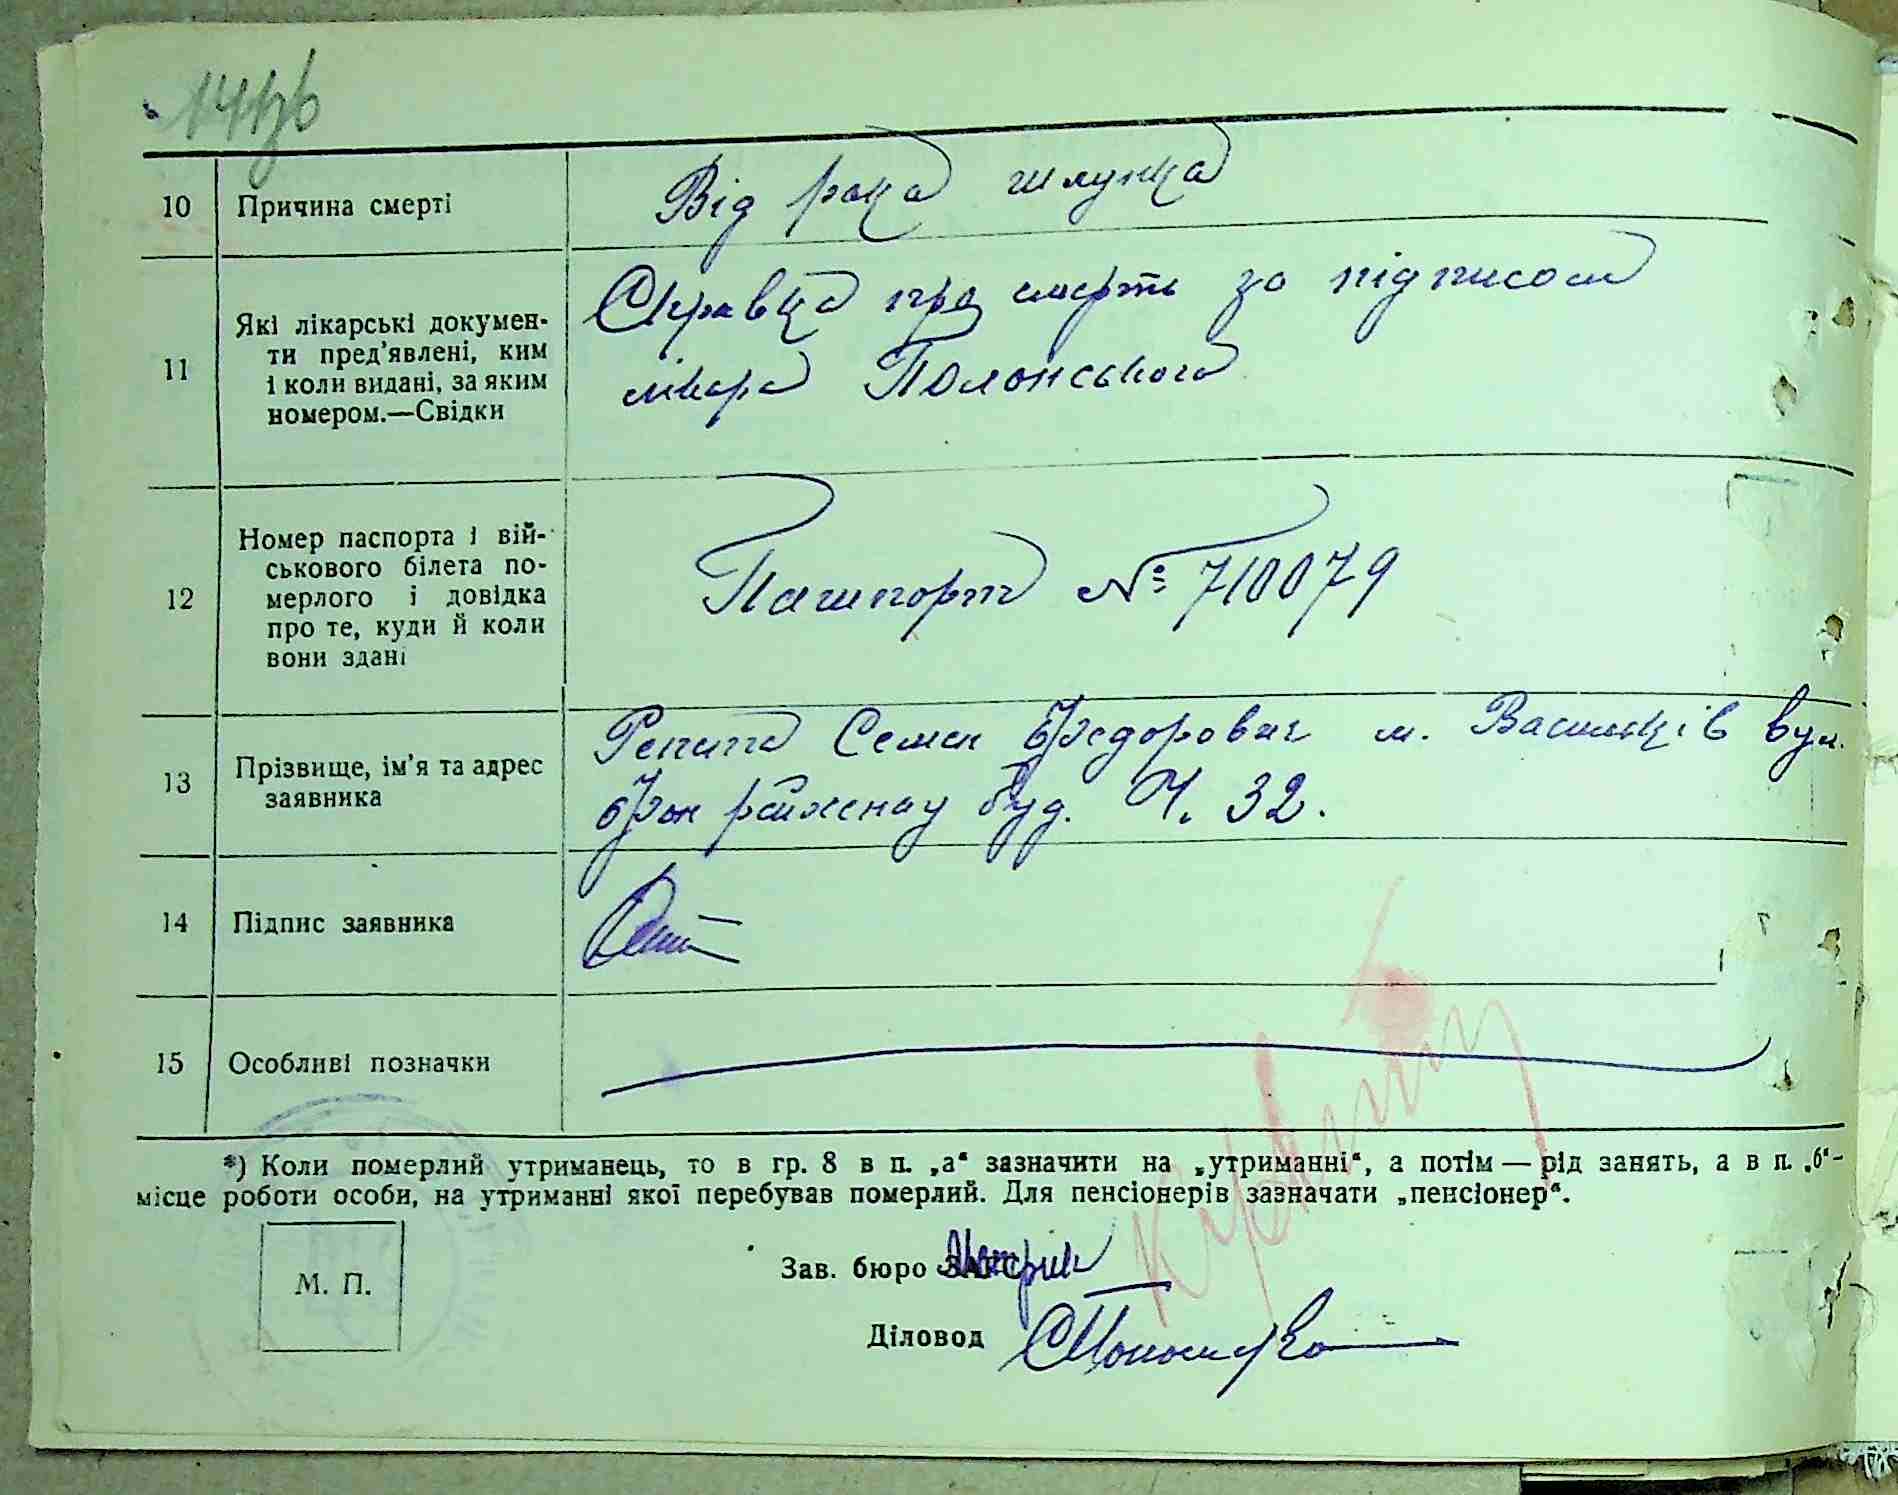 10 Причина смерті Від рака шлунка
11 Які лікарські докумен-
ти пред’явлені, ким
і коли видані, за яким
номером.—Свідки
Справка про смерть за підписом
лікара Полонського
12 Номер паспорта і вій-
ськового білета по-
мерлого і довідка
про те, куди й коли
вони здані
Пашпорт № 710079
13 Прізвище, ім’я та адрес
заявника
Репита Семен Федорович м. Васильків вул.
буд. Ч. 32.
14 Підпис заявника
15 Особливі позначки
*) Коли померлий утриманець, то в гр. 8 в п. „а“ зазначити на „утриманні“, а потім — рід занять, а в п. „б“-
місце роботи особи, на утриманні якої перебував померлий. Для пенсіонерів зазначати „пенсіонер“.
М. П.
Зав. бюро ЗАГС
Діловод